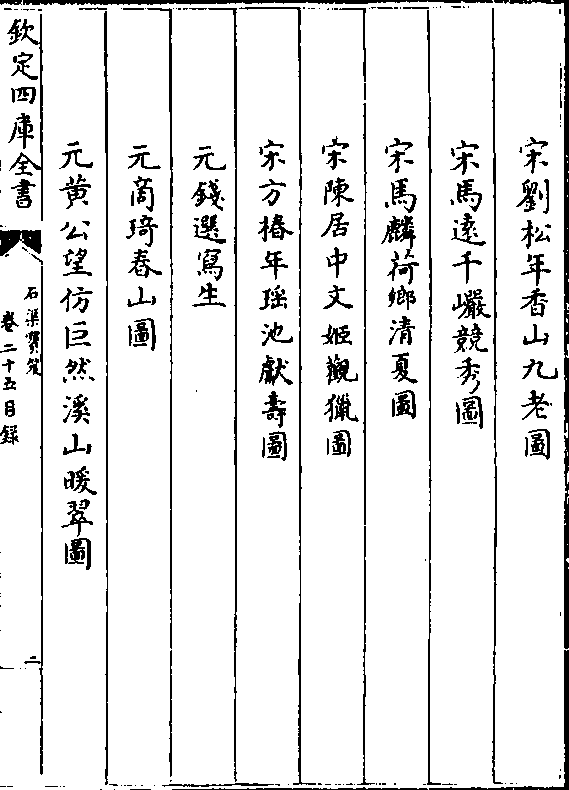 宋劉松年香山九老圖
宋馬遠千巗競秀圖
宋馬麟荷鄉清夏圖
宋陳居中文姬觀獵圖
宋方椿年瑶池獻壽圖
元錢選寫生
元商琦春山圖
元黄公望仿巨然溪山暖翠圖
欽定四庫全書
石渠寶笈
卷二十五目録
二